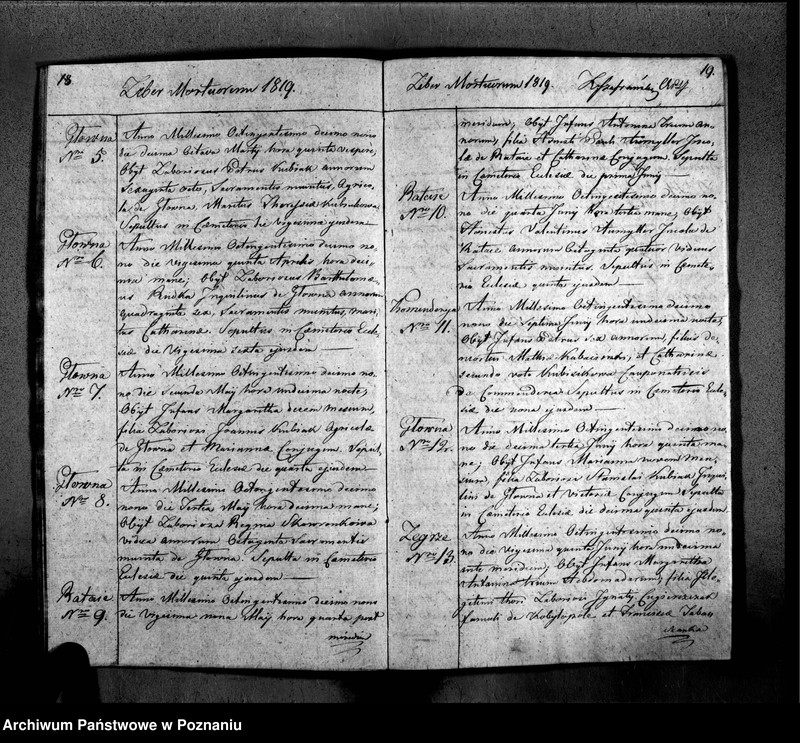 18
Liber Mortuorum 1819.
Głowna
Nro 5.
Anno Millesimo Octingentesimo decimo nono
die decima Octava Martÿ hora quinta vespere,
Obÿt Laboriosus Petrus Kubiak annorum
Sexaginta Octo, Sacramentis munitus, Agrico,
la de Głowna, Maritus
Sepultus in Cæmeterio die vigesima ejusdem
Głowna
Nro 6.
Anno Millesimo Octingentesimo decimo no,
no die vigesima quinta Aprilis hora deci,
ma mane; Obÿt Laboriosus Bartholomæ,
us Rudka Inquilinus de Głowna annorum
quadraginta sex, Sacramentis munitus, mari,
tus Catharinæ. Sepultus in Cæmeterio Eccle,
siæ die Vigesima sexta ejusdem
Głowna
Nro 7.
Anno Millesimo Octingentesimo decimo no,
no die Secunda Maÿ hora undecima nocte,
Obÿt Infans Margaritha decem mensium,
filia Laboriosi Joannis Kubiak Agricolæ
de Głowna et Mariannæ Conjugum. Sepul,
ta in Cæmeterio Eclesiæ die quarta ejusdem
Głowna
Nro 8.
Anno Millesimo Octingentesimo decimo
nono die Tertia Maÿ hora decima mane;
Obÿt Laboriosa Regina Skowronkowa
vidua annorum Octoginta Sacramentis
munita de Głowna. Sepulta in Cæmeterio
Eclesiæ die quinta ejusdem
Rataie
Nro 9.
Anno Millesimo Octingentesimo decimo nono
die Vigesima nona Maÿ hora quarta post
meridiem
19.
Liber Mortuorum 1819.
meridiem; Obÿt Infans Antonina trium an,
norum, filia Honesti Pauli Inco,
læ de Rataie et Catharinæ Conjugum. Sepulta
in Cæmeterio Eclesiæ die prima Junÿ
Rataie
Nro 10.
Anno Millesimo Octingentesimo decimo no,
no die quarta Junÿ hora tertia mane, Obÿt
Honestus Valentinus Incola de
Rataie annorum Octoginta quatuor viduus
Sacramentis munitus. Sepultus in Cæmete,
rio Eclesiæ quinta ejusdem
Komenderya
Nro 11.
Anno Millesimo Octingentesimo decimo
nono die Septima Junÿ hora undecima nocte,
Obÿt Infans Petrus sex annorum, filius de,
mortui Mathiæ et Catharinæ
secundo voto Cauponatricis
de Commenderia Sepultus in Cæmeterio Eccle,
siæ die nona ejusdem
Głowna
Nro 12.
Anno Millesimo Octingentesimo decimo no,
no die decima tertia Junÿ hora quinta ma,
ne; Obÿt Infans Marianna novem men,
sium, filia Laboriosi Stanislai Kubiak Inqui,
lini de Głowna et Victoriæ Conjugum Sepulta
in Cæmeterio Eclesiæ die decima quinta ejusdem
Zegrze
Nro 13.
Anno Millesimo Octingentesimo decimo no,
no die Vigesima quinta Junÿ hora undecima
ante meridiem, Obÿt Infans Margaritha
Antonina trium Hebdomadarum, filia Ille,
gitimi thori Laboriosi Ignatÿ
famuli de Kobylopole et Franciscæ
Archiwum Państwowe w Poznaniu